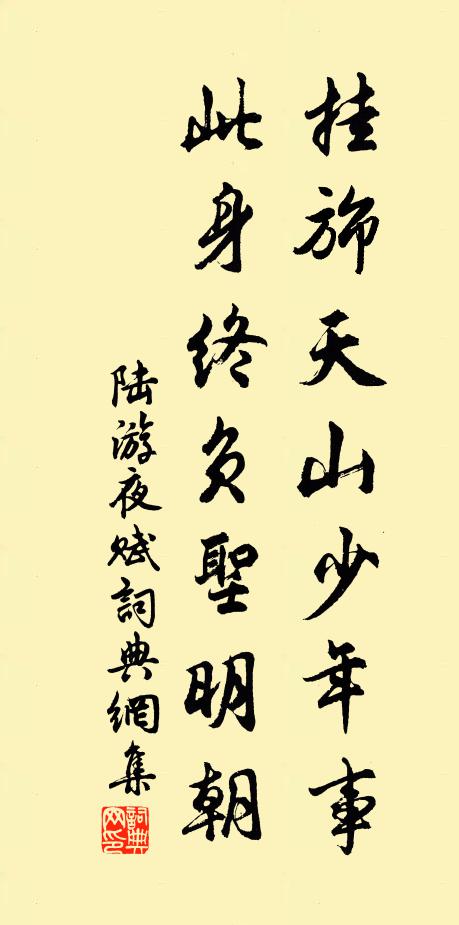 挂旆天山少年事
此身终负聖明朝
陆游夜赋詞典網集
詞典网印